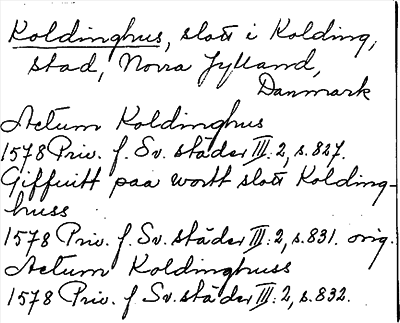 Koldinghus, slott i Kolding,
stad, Norra Jylland,
Danmark
Actum Koldinghus
1578 Priv. f. Sv. städer III: 2, s. 827.
Giffuitt paa wortt slott Kolding-
huss
1578 Priv. f. Sv. städer III: 2, s. 831. orig.
Actum Koldinghuss
1578 Priv. f. Sv. städer III: 2, s. 832.